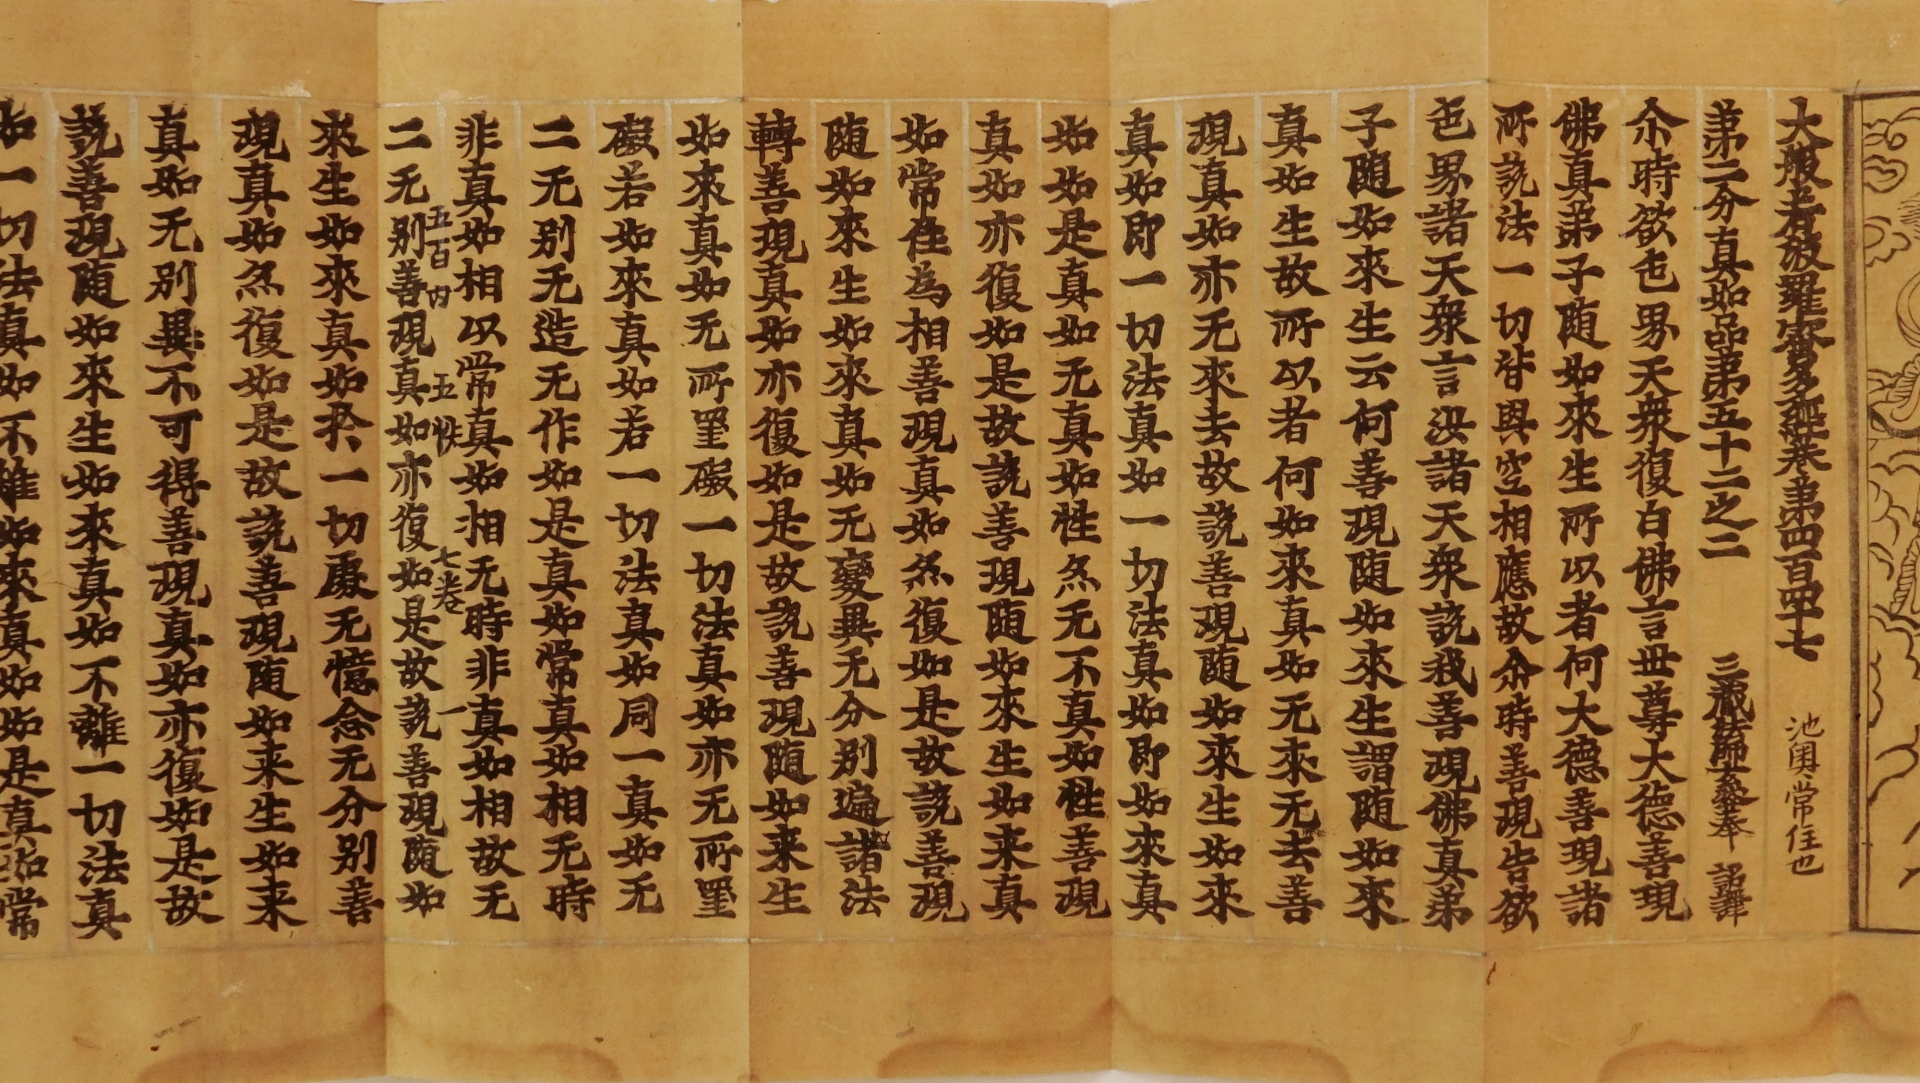 大般若波羅蜜多經卷第四百四十七
池奧常住也
第二分真如品第五十二之二 三藏法師玄奘奉 詔譯
尒時欲色界天衆復白佛言世尊大德善現
佛真弟子随如來生所以者何大德善現諸
所說法一切皆與空相應故尒時善現告欲
色界諸天衆言汝諸天衆說我善現佛真弟
子随如來生云何善現随如來生謂随如來
真如生故所以者何如來真如无來无去善
現真如亦无來去故說善現随如來生如來
真如即一切法真如一切法真如即如來真
如如是真如无真如性亦无不真如性善現
真如亦復如是故說善現随如來生如来真
如常住為相善現真如亦復如是故說善現
随如來生如來真如无變異无分别遍諸法
轉善現真如亦復如是故說善現随如来生
如來真如无所罣礙一切法真如亦无所罣
礙若如來真如若一切法真如同一真如无
二无别无造无作如是真如常真如相无時
非真如相以常真如相无時非真如相故无
五百内 五帙 七卷 一
二无别善現真如亦復如是故說善現随如
來生如來真如於一切處无憶念无分别善
現真如亦復如是故說善現随如来生如来
真如无别異不可得善現真如亦復如是故
說善現随如來生如來真如不離一切法真
如一切法真如不離如來真如如是真如常